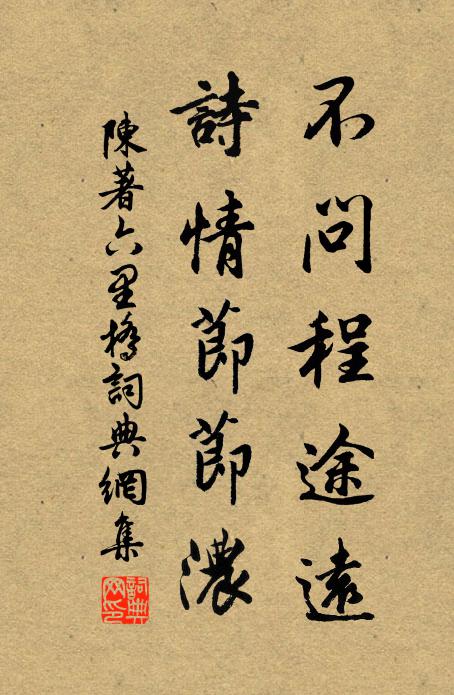 不問程途遠
詩情節節濃
陳著六里橋詞典網集
詞典網印